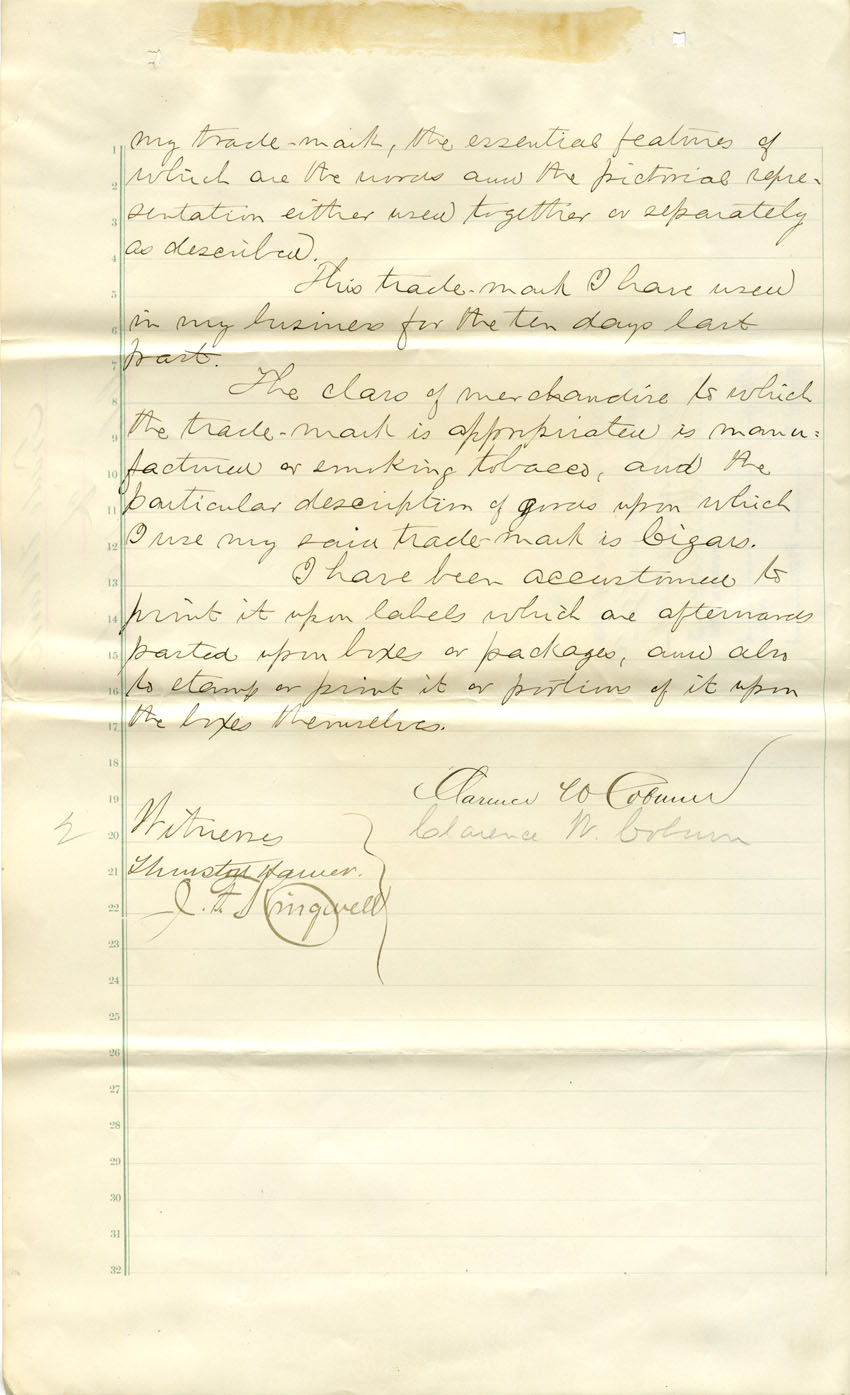 my trade-mark, the essential features of
which are the words and the pictorial repre-
sentation either used together or separately
as described.
This trade-mark I have used
in my business for the ten days last
past.
The class of merchandise to which
the trade-mark is appropriated is manu-
factured or smoking tobacco, and the
particular description of goods upon which
I use my said trade-mark is Cigars.
I have been accustomed to
print it upon labels which are afterwards
pasted upon boxes or packages, and also
to stamp or print it or portions of it upon
the boxes themselves.
Clarence W Coburn
Clarence W. Coburn
Witnesses
J. F. Kingwell
1
2
3
4
5
6
7
8
9
10
11
12
13
14
15
16
17
18
19
20
21
22
23
24
25
26
27
28
29
30
31
32
2